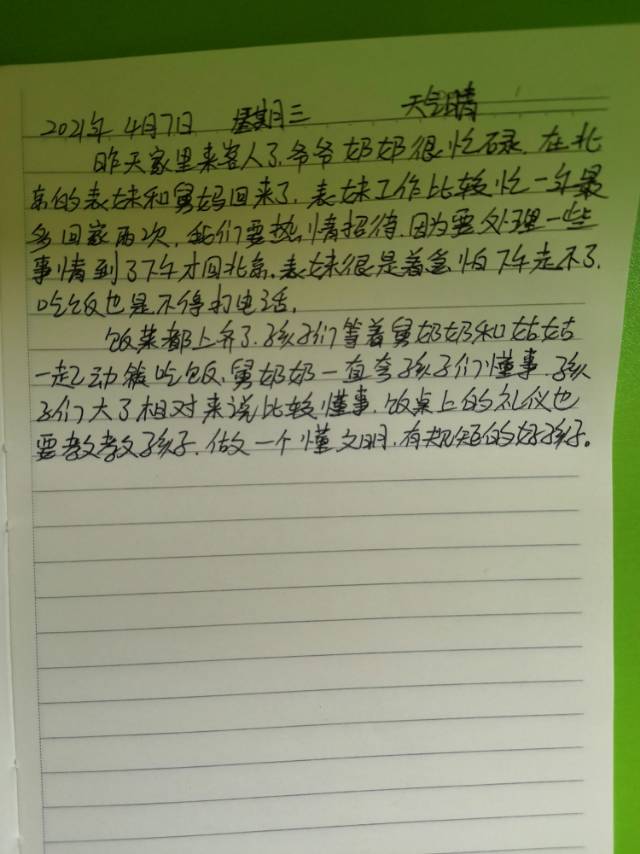 2021年 4月7日 星期三 天气晴
昨天家里来客人了.爷爷奶奶很忙碌.在北
京的表妹和舅妈回来了.表妹工作比较忙一年最
多回家两次,我们要热情招待.因为要处理一些
事情到了下午才回北京.表妹很是着急怕下午走不了.
吃饭也是不停打电话.
饭菜都上齐了.孩子们等着舅奶奶和姑姑
一起动筷吃饭.舅奶奶一直夸孩子们懂事.孩
子们大了相对来说比较懂事.饭桌上的礼仪也
要教教孩子.做一个懂文明.有规矩的好孩子。